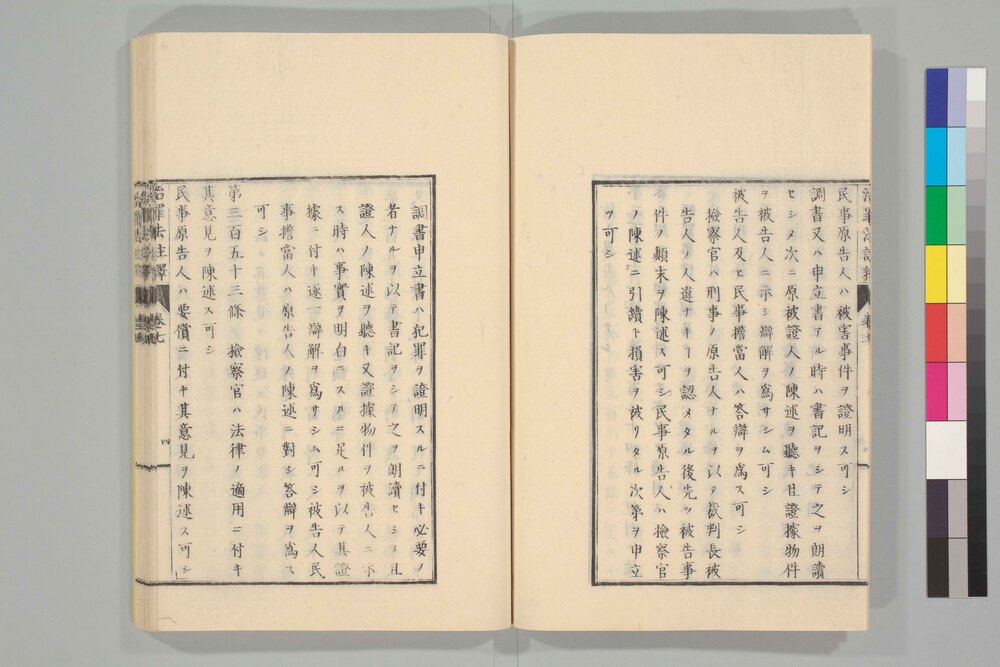 民事原告人ハ被害事件ヲ證明ス可シ
調書又ハ申立書アル時ハ書記ヲシテ之ヲ朗讀
セシメ次ニ原被證人ノ陳述ヲ聽キ且證據物件
ヲ被告人ニ示シ辯解ヲ爲サシム可シ
被告人及ヒ民事擔當人ハ答辯ヲ爲ス可シ
檢察官ハ刑事ノ原告人ナルヲ以テ裁判長被
告人ノ人違ナキヿヲ認メタル後先ツ被告事
件ノ顚末ヲ陳述ス可シ民事原告人ハ檢察官
ノ陳述ニ引續キ損害ヲ被リタル次第ヲ申立
ツ可シ
調書申立書ハ犯罪ヲ證明スルニ付キ必要ノ
者ナルヲ以テ書記ヲシテ之ヲ朗讀セシメ且
證人ノ陳述ヲ聽キ又證據物件ヲ被告人ニ示
ス時ハ事實ヲ明白ニスルニ足ルヲ以テ其證
據ニ付キ逐一辯解ヲ爲サシム可シ被告人民
事擔當人ハ原告人ノ陳述ニ對シ答辯ヲ爲ス
可シ
第三百五十三條 檢察官ハ法律ノ適用ニ付キ
其意見ヲ陳述ス可シ
民事原告人ハ要償ニ付キ其意見ヲ陳述ス可シ
治罪法註釋 卷七